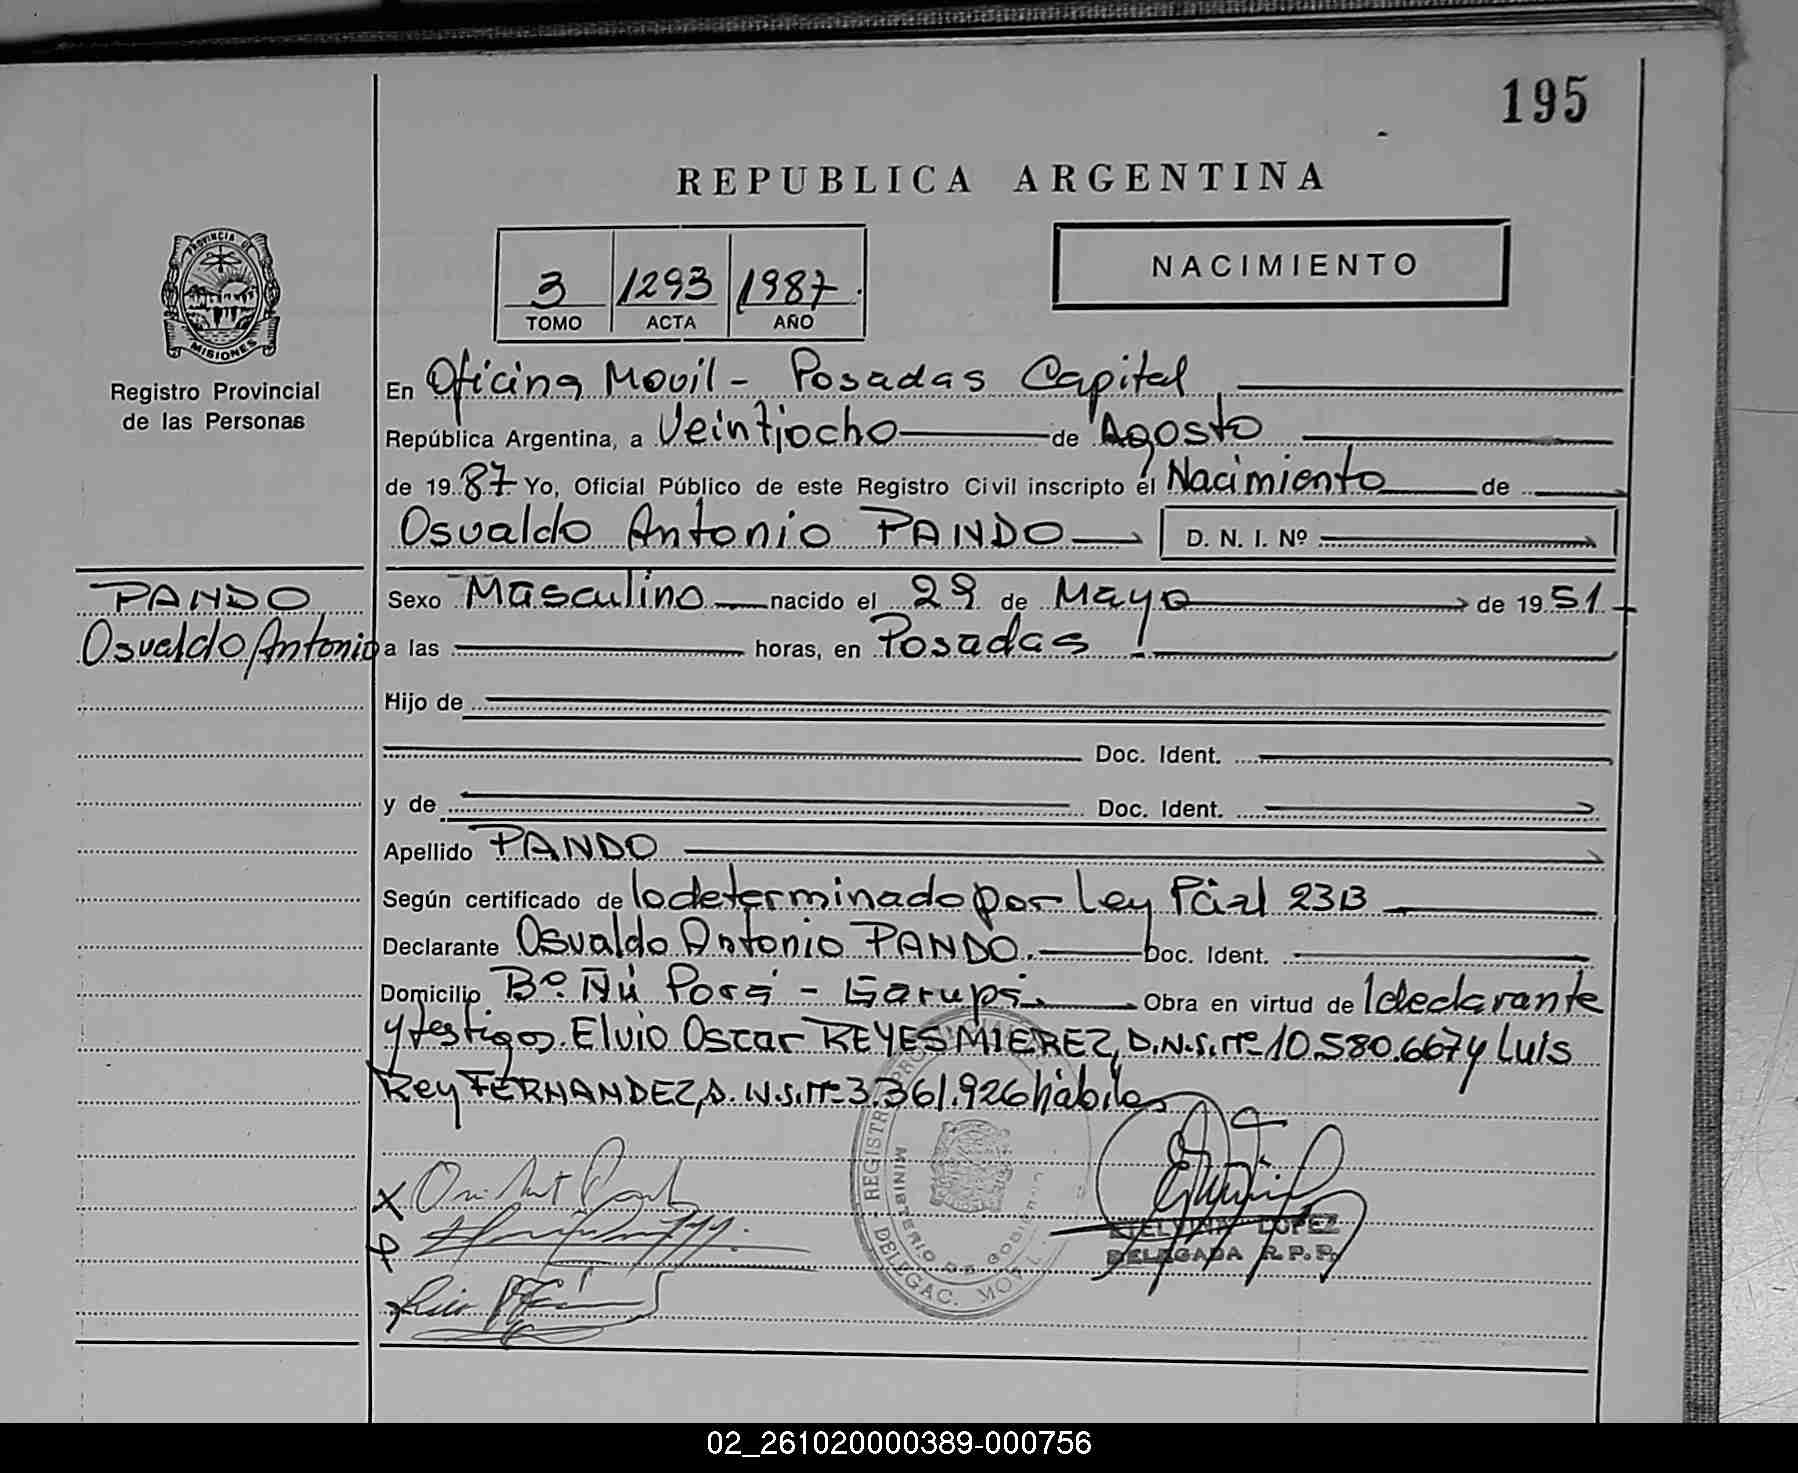 195
REPUBLICA ARGENTINA
PROVINCIA DE
MISIONES
Registro Provincial
de las Personas
3 1293 1987
TOMO ACTA AÑO
NACIMIENTO
En Oficina Movil - Posadas Capital
República Argentina, a Veintiocho de Agosto
de 1987 Yo, Oficial Público de este Registro Civil inscripto el Nacimiento de
Osvaldo Antonio PANDO D. N. I. Nº
PANDO
Osvaldo Antonio
Sexo Masculino nacido el 29 de Mayo de 1951
a las horas, en Posadas
Hijo de
Doc. Ident.
y de Doc. Ident.
Apellido PANDO
Según certificado de lo determinado por Ley Pcial 2313
Declarante Osvaldo Antonio PANDO. Doc. Ident.
Domicilio Bº. Ñú Porá - Garupá. Obra en virtud de l declarante
y testigos. Elvio Oscar REYES MIEREZ, D.N.I. Nº 10.580.667 y Luis
Rey FERNANDEZ, D.N.I. Nº 3.361.926 hábiles
REGISTRO
MINISTERIO DE GOBIERNO
DELEGAC. MOVIL
LOPEZ
DELEGADA R.P.P.
02_261020000389-000756